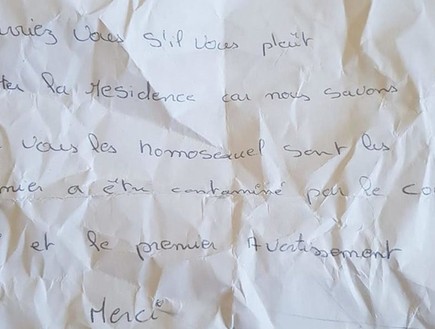 urriez vous s'il vous plaît
ter la residence car nous savons
vous les homosexuel sont les
mier a être contaminé par le co
et le premier Avertissement
Merci